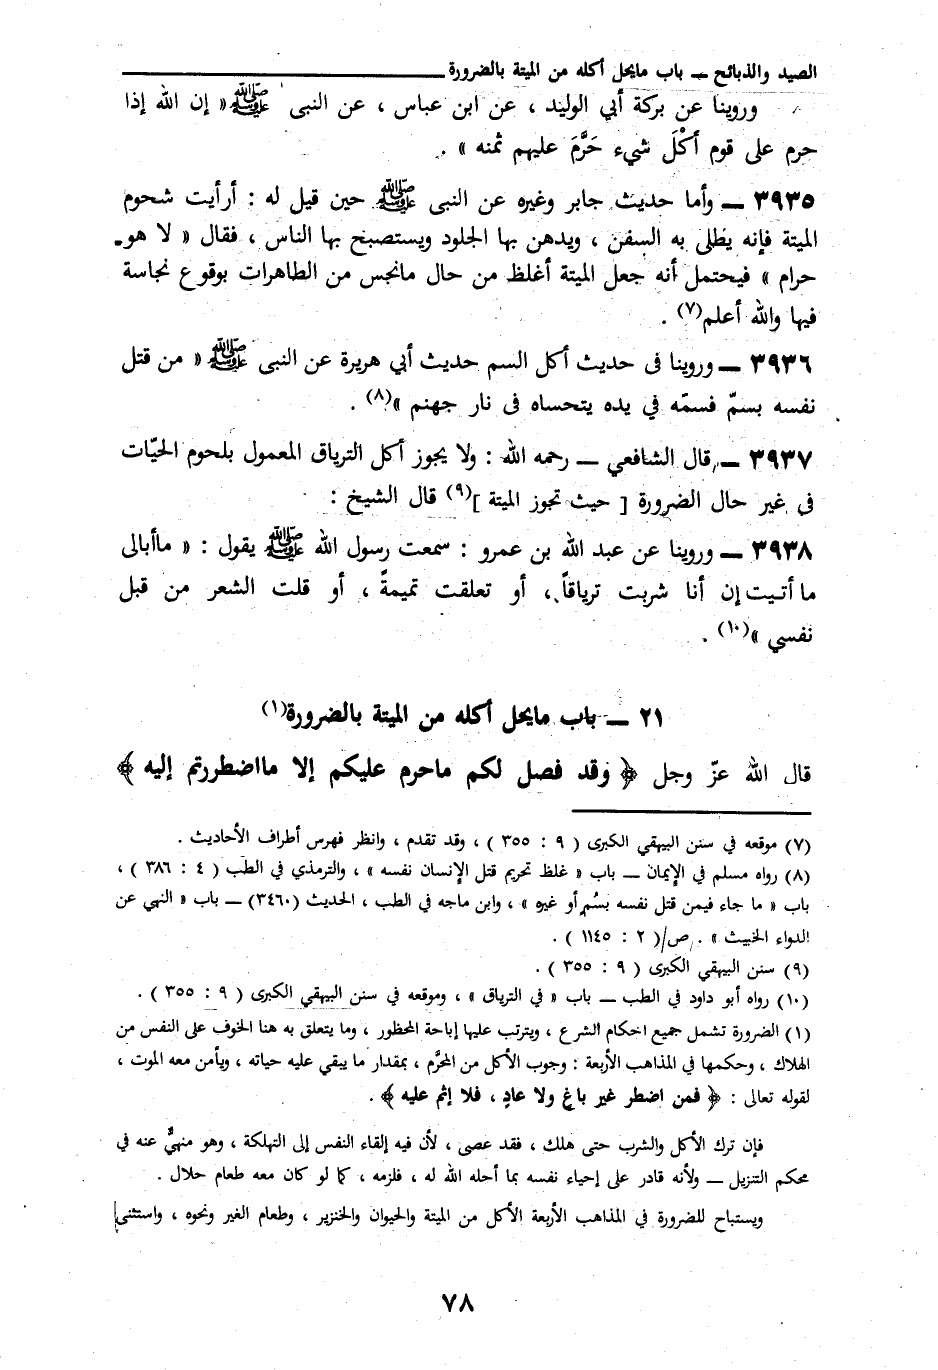 الصيد والذبائح ـــ باب مايحل أكله من الميتة بالضرورة
وروينا عن بركة أبي الوليد ، عن ابن عباس ، عن النبى ﷺ « إن الله إذا
حرم على قوم أكْلَ شيء حَرَّمَ عليهم ثمنه » .
٣٩٣٥ ـــ وأما حديث جابر وغيره عن النبى ﷺ حين قيل له : أرأيت شحوم
الميتة فإنه يطلى به السفن ، ويدهن بها الجلود ويستصبح بها الناس ، فقال « لا هو
حرام » فيحتمل أنه جعل الميتة أغلظ من حال مانجس من الطاهرات بوقوع نجاسة
فيها والله أعلم(٧) .
٣٩٣٦ ـــ وروينا فى حديث أكل السم حديث أبي هريرة عن النبى ﷺ « من قتل
نفسه بسمّ فسمّه في يده يتحساه فى نار جهنم »(٨) .
٣٩٣٧ ـــ قال الشافعي ـــ رحمه الله : ولا يجوز أكل الترياق المعمول بلحوم الحيّات
فى غير حال الضرورة [ حيث تجوز الميتة ](٩) قال الشيخ :
٣٩٣٨ ـــ وروينا عن عبد الله بن عمرو : سمعت رسول الله ﷺ يقول : « ماأبالى
ما أتيت إن أنا شربت ترياقاً ، أو تعلقت تميمةً ، أو قلت الشعر من قبل
نفسي »(١٠) .
٢١ ـــ باب مايحل أكله من الميتة بالضرورة(١)
قال الله عزّ وجل ﴿ وقد فصل لكم ماحرم عليكم إلا مااضطررتم إليه ﴾
(٧) موقعه في سنن البيهقي الكبرى ( ٩ : ٣٥٥ ) ، وقد تقدم ، وانظر فهرس أطراف الأحاديث .
(٨) رواه مسلم في الإيمان ـــ باب « غلظ تحريم قتل الإنسان نفسه » ، والترمذي في الطب ( ٤ : ٣٨٦ ) ،
باب « ما جاء فيمن قتل نفسه بسُم أو غيره » ، وابن ماجه في الطب ، الحديث (٣٤٦٠) ـــ باب « النهي عن
الدواء الخبيث » . ص/( ٢ : ١١٤٥ ) .
(٩) سنن البيهقي الكبرى ( ٩ : ٣٥٥ ) .
(١٠) رواه أبو داود في الطب ـــ باب « في الترياق » ، وموقعه في سنن البيهقي الكبرى ( ٩ : ٣٥٥ ) .
(١) الضرورة تشمل جميع احكام الشرع ، ويترتب عليها إباحة المحظور ، وما يتعلق به هنا الخوف على النفس من
الهلاك ، وحكمها في المذاهب الأربعة : وجوب الأكل من المحرَّم ، بمقدار ما يبقي عليه حياته ، ويأمن معه الموت ،
لقوله تعالى : ﴿ فمن اضطر غير باغٍ ولا عادٍ ، فلا إثم عليه ﴾ .
فإن ترك الأكل والشرب حتى هلك ، فقد عصى ، لأن فيه إلقاء النفس إلى التهلكة ، وهو منهيٌّ عنه في
محكم التنزيل ـــ ولأنه قادر على إحياء نفسه بما أحله الله له ، فلزمه ، كما لو كان معه طعام حلال .
ويستباح للضرورة في المذاهب الأربعة الأكل من الميتة والحيوان والخنزير ، وطعام الغير ونحوه ، واستثنى
٧٨